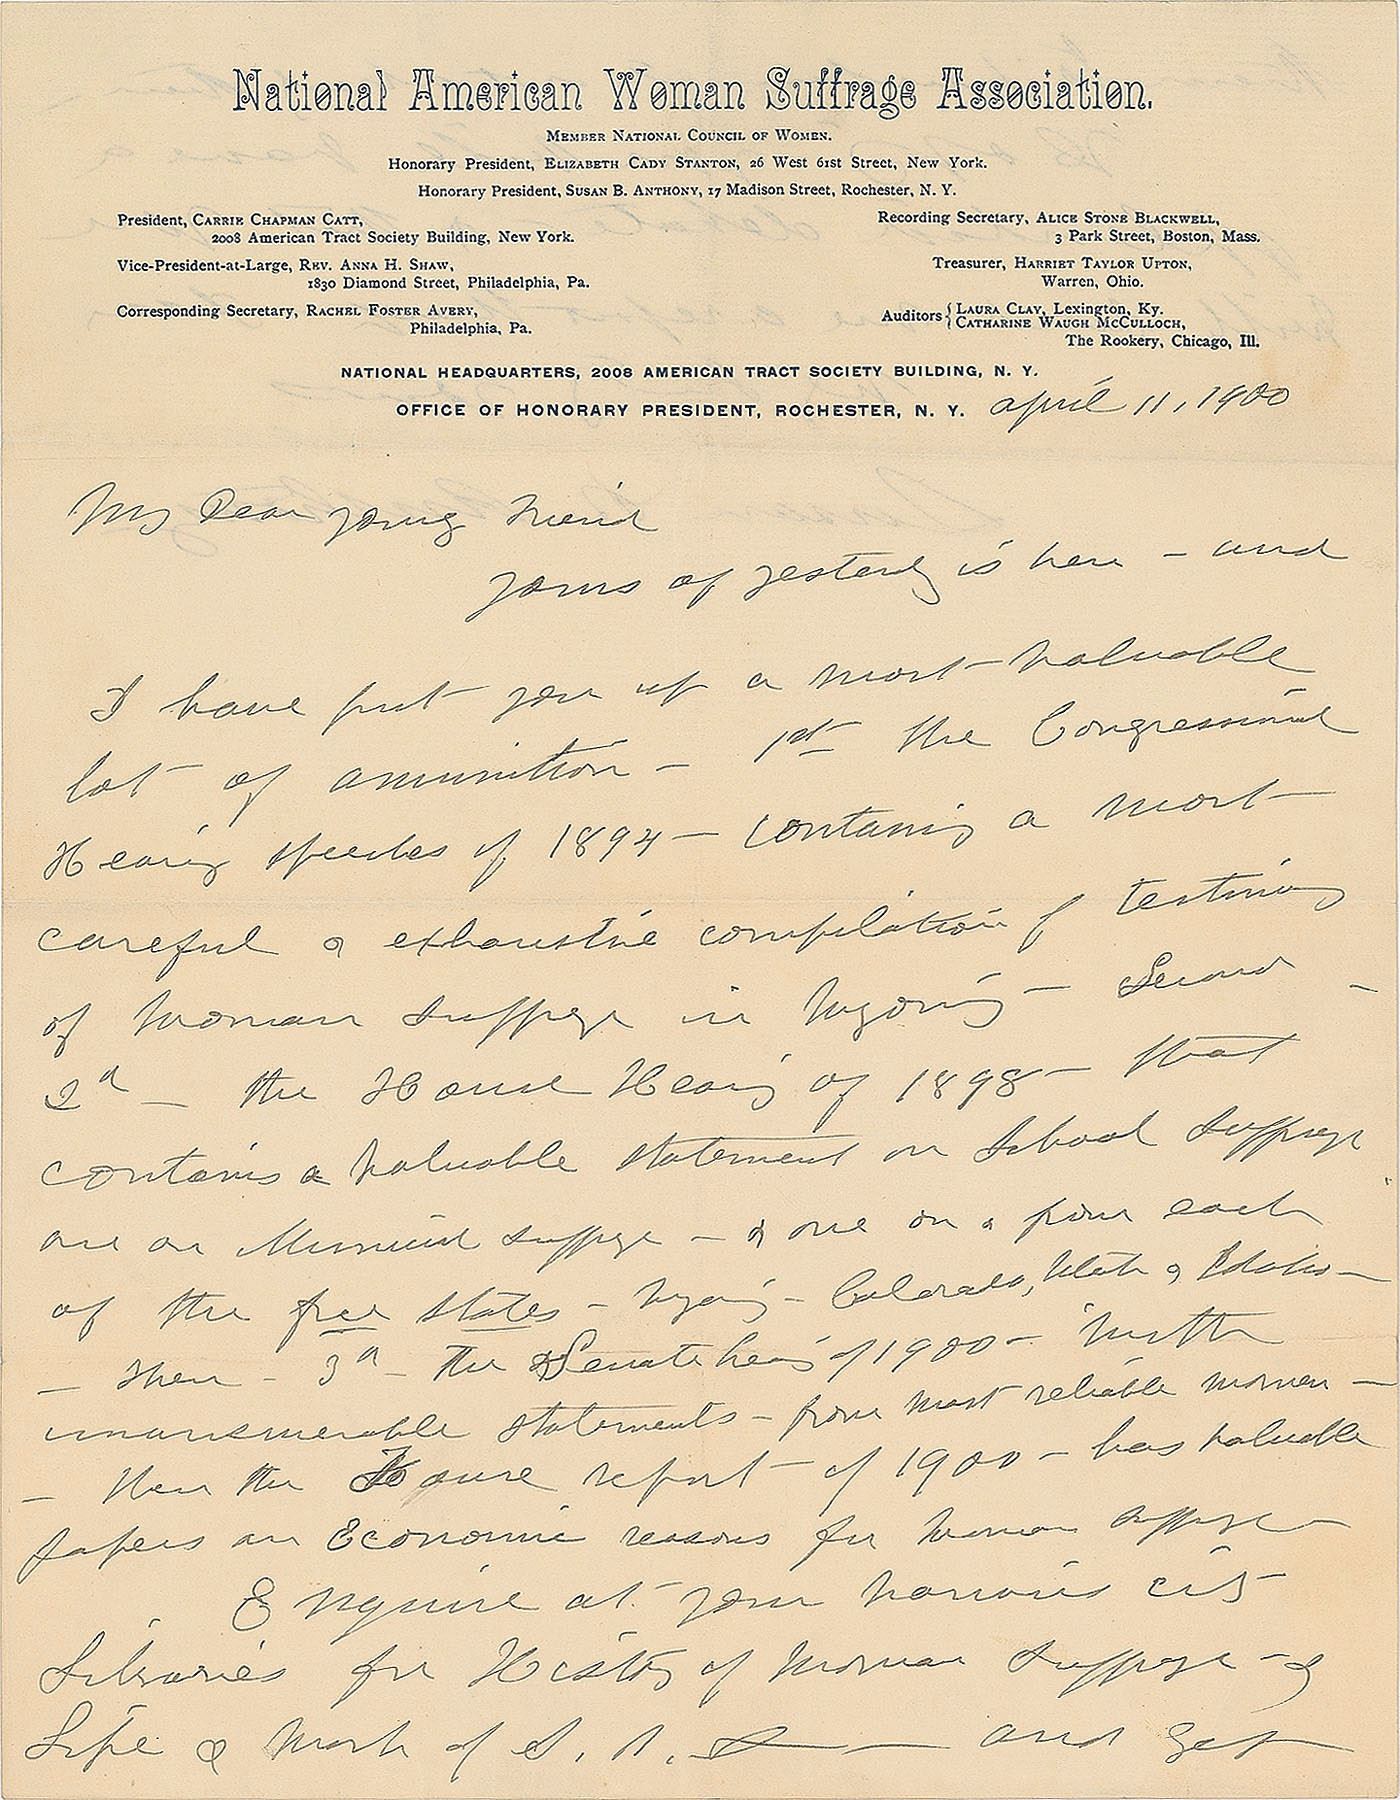 National American Woman Suffrage Association.
Member National Council of Women.
Honorary President, Elizabeth Cady Stanton, 26 West 61st Street, New York.
Honorary President, Susan B. Anthony, 17 Madison Street, Rochester, N. Y.
President, Carrie Chapman Catt,
2008 American Tract Society Building, New York.
Vice-President-at-Large, Rev. Anna H. Shaw,
1830 Diamond Street, Philadelphia, Pa.
Corresponding Secretary, Rachel Foster Avery,
Philadelphia, Pa.
Recording Secretary, Alice Stone Blackwell,
3 Park Street, Boston, Mass.
Treasurer, Harriet Taylor Upton,
Warren, Ohio.
Auditors { Laura Clay, Lexington, Ky.
Catharine Waugh McCulloch,
The Rookery, Chicago, Ill.
NATIONAL HEADQUARTERS, 2008 AMERICAN TRACT SOCIETY BUILDING, N. Y.
OFFICE OF HONORARY PRESIDENT, ROCHESTER, N. Y. April 11, 1900
My Dear young friend
Yours of yesterday is here - and
I have put you up a most valuable
lot of ammunition - 1st the Congressional
Hearing speeches of 1894 - containing a most
careful & exhaustive compilation of testimony
of woman suffrage in Wyoming - Second -
2d - the House Hearing of 1898 - that
contains a valuable statement on School suffrage
one on Municipal suffrage - & one on & from each
of the free states - Wyoming - Colorado, Utah & Idaho -
- Then - 3d - the Senate hearing of 1900 - with
unanswerable statements - from most reliable women -
- then the House report of 1900 - has valuable
papers on Economic reasons for woman suffrage -
Enquire at your various city
Libraries for History of Woman Suffrage - &
Life & Work of S. B. A - and get